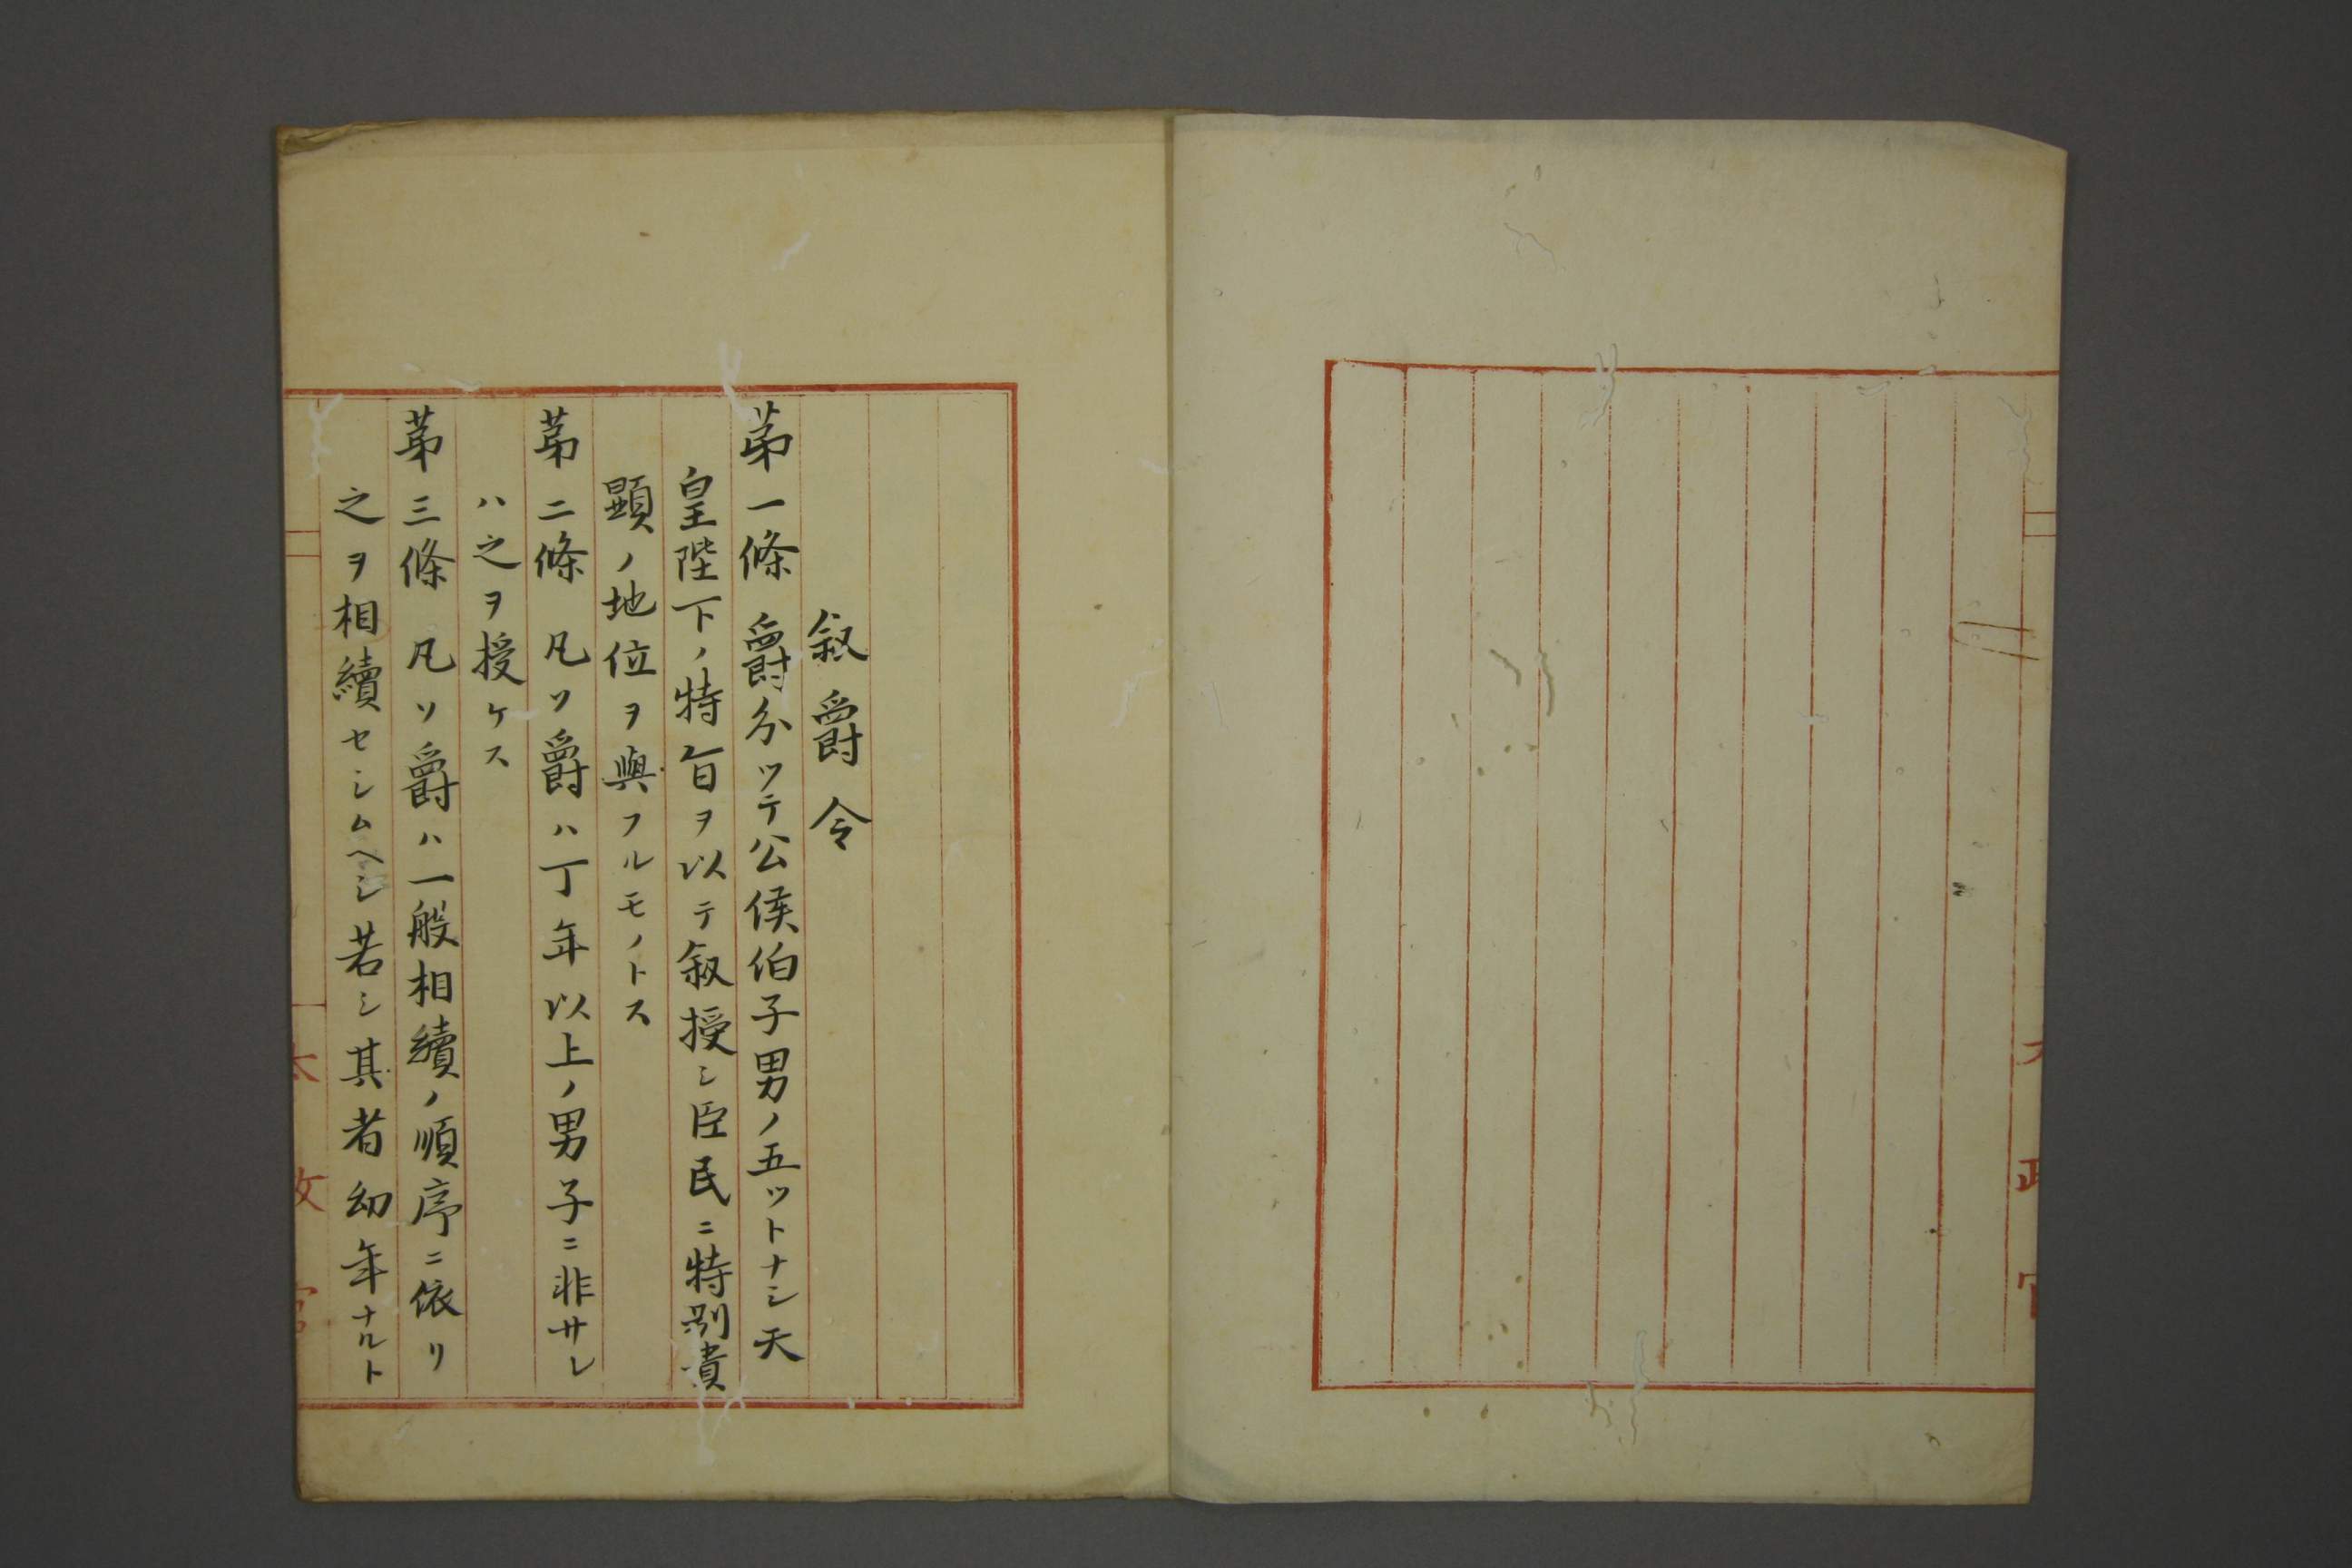 叙爵令
第一條 爵分ツテ公侯伯子男ノ五ツトナシ天
皇陛下ノ特旨ヲ以テ叙授シ臣民ニ特別貴
顕ノ地位ヲ與フルモノトス
第二條 凡ソ爵ハ丁年以上ノ男子ニ非サレ
ハ之ヲ授ケス
第三條 凡ソ爵ハ一般相續ノ順序ニ依リ
之ヲ相續セシムヘシ若シ其者幼年ナルト
太政官